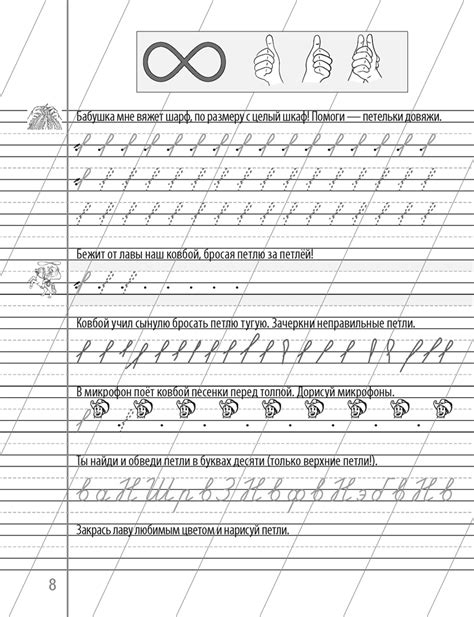 Бабушка мне вяжет шарф, по размеру с целый шкаф! Помоги — петельки довяжи.
Бежит от лавы наш ковбой, бросая петлю за петлёй!
Ковбой учил сынулю бросать петлю тугую. Зачеркни неправильные петли.
В микрофон поёт ковбой песенки перед толпой. Дорисуй микрофоны.
Ты найди и обведи петли в буквах десяти (только верхние петли!).
в а Н Ш р в З Н в ф в Н э б в Н в
Закрась лаву любимым цветом и нарисуй петли.
8